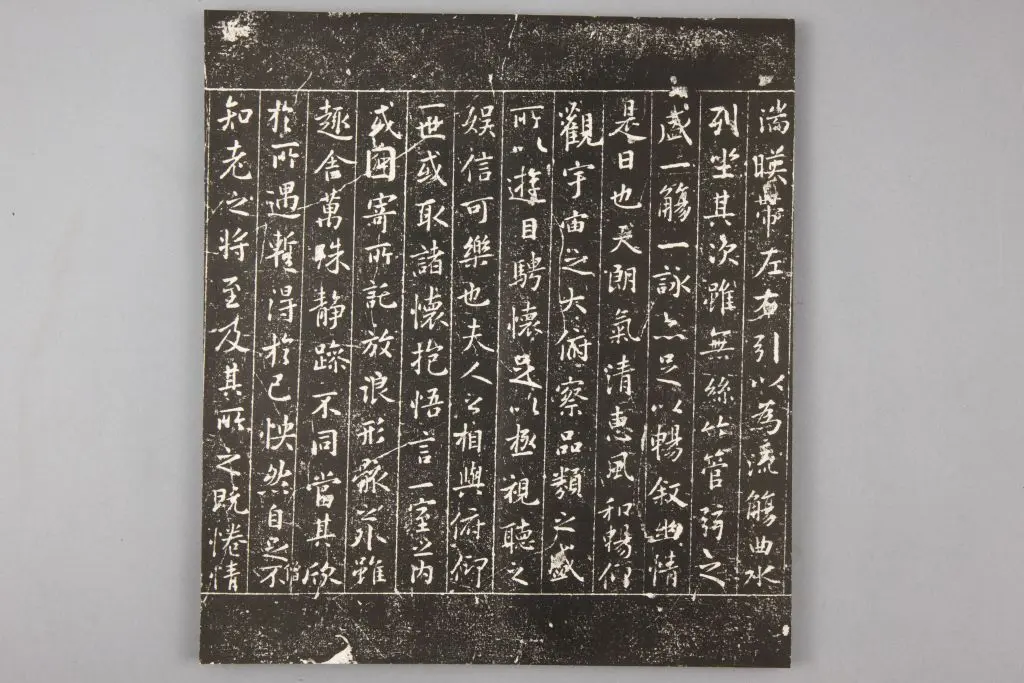 湍暎帶左右引以為流觴曲水
列坐其次雖無絲竹管弦之
盛一觴一詠亦足以暢叙幽情
是日也天朗氣清惠風和暢仰
觀宇宙之大俯察品類之盛
所以遊目騁懷足以極視聽之
娛信可樂也夫人之相與俯仰
一世或取諸懷抱悟言一室之内
或因寄所託放浪形骸之外雖
趣舍萬殊静躁不同當其欣
於所遇蹔得於己怏然自足不
知老之將至及其所之既惓情